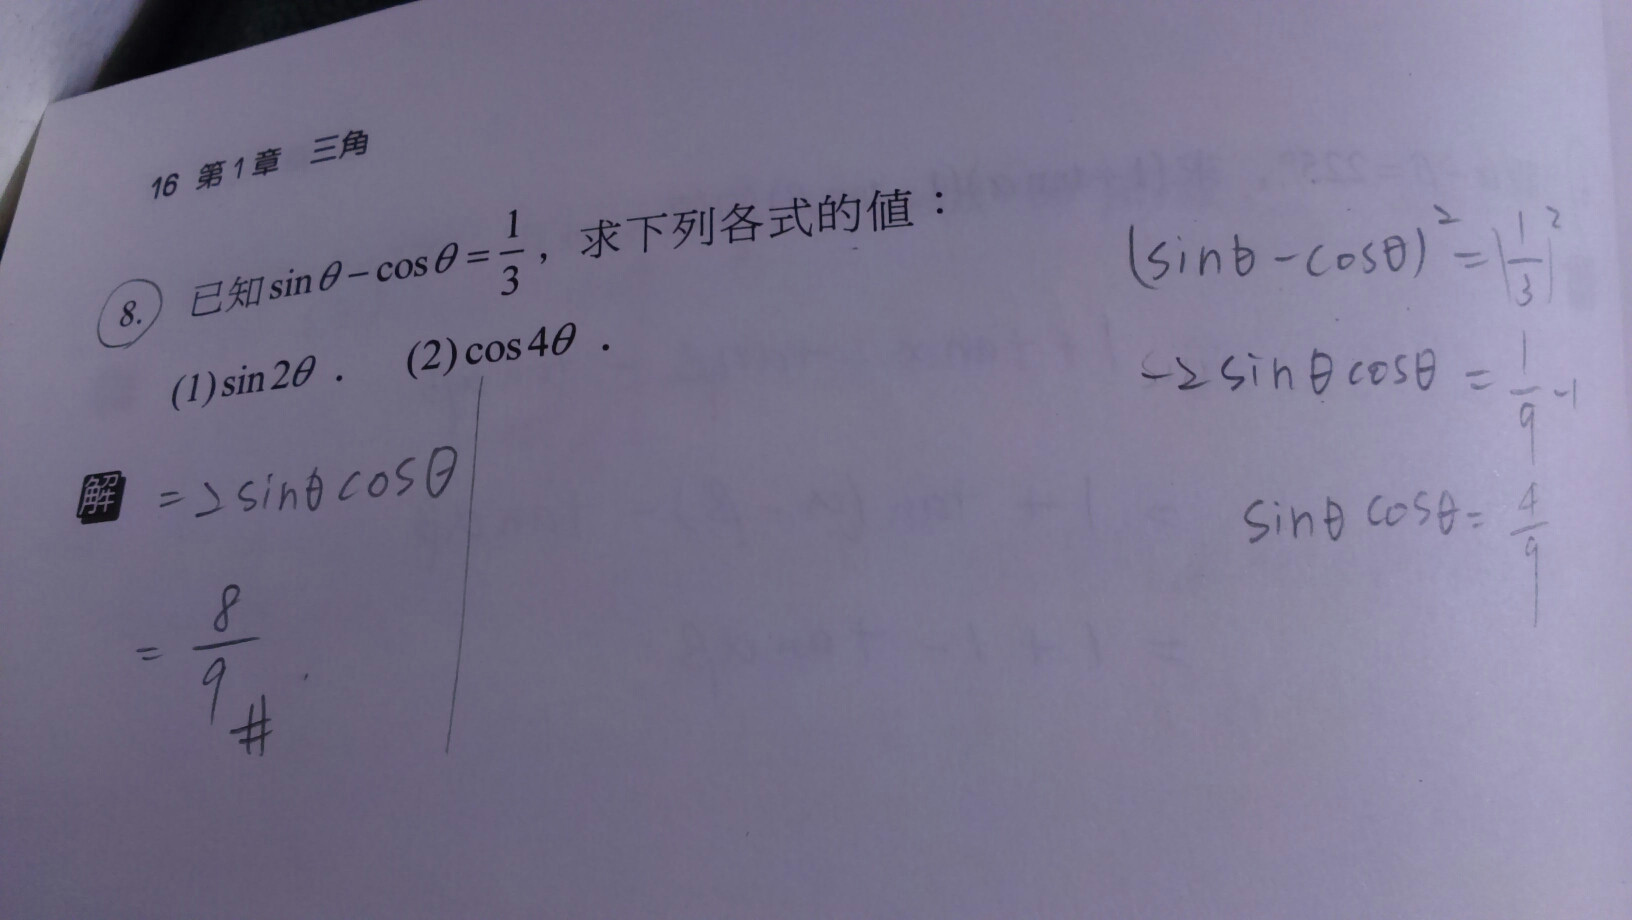 16 第1章 三角
8. 已知sinθ−cosθ=1/3，求下列各式的值：
(1)sin2θ． (2)cos4θ．
解 =2sinθcosθ
=8/9 #
(sinθ-cosθ)²=(1/3)²
-2sinθcosθ=1/9-1
sinθcosθ=4/9